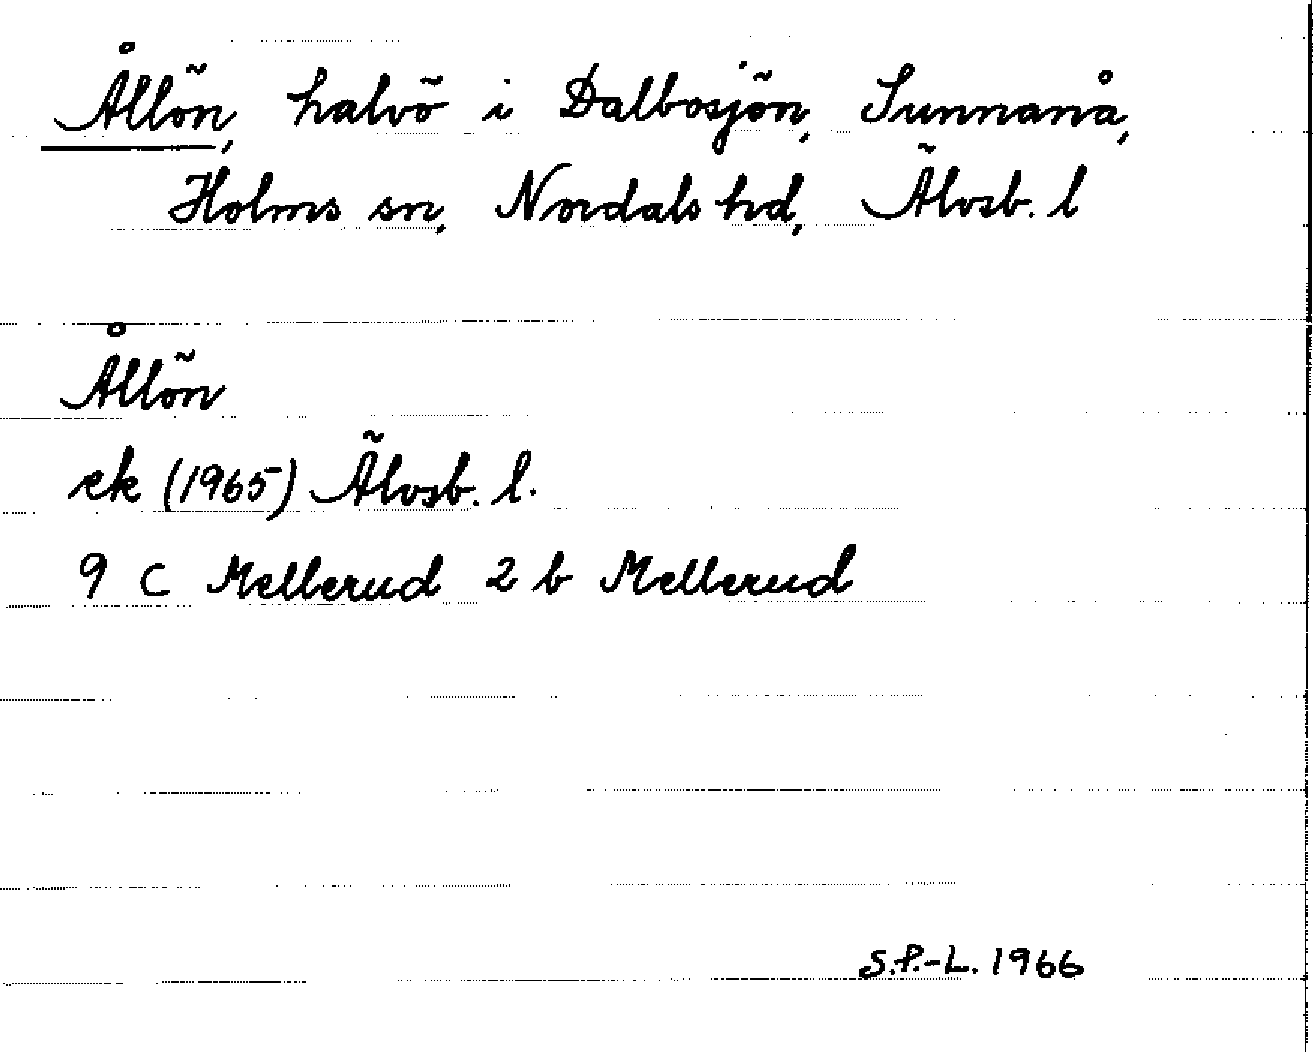 Ållön, halvö i Dalbosjön, Sunnanå,
Holms sn, Nordals hd, Älvsb. l
Ållön
ek (1965) Älvsb. l.
9 C Mellerud 2 b Mellerud
S.P.-L. 1966